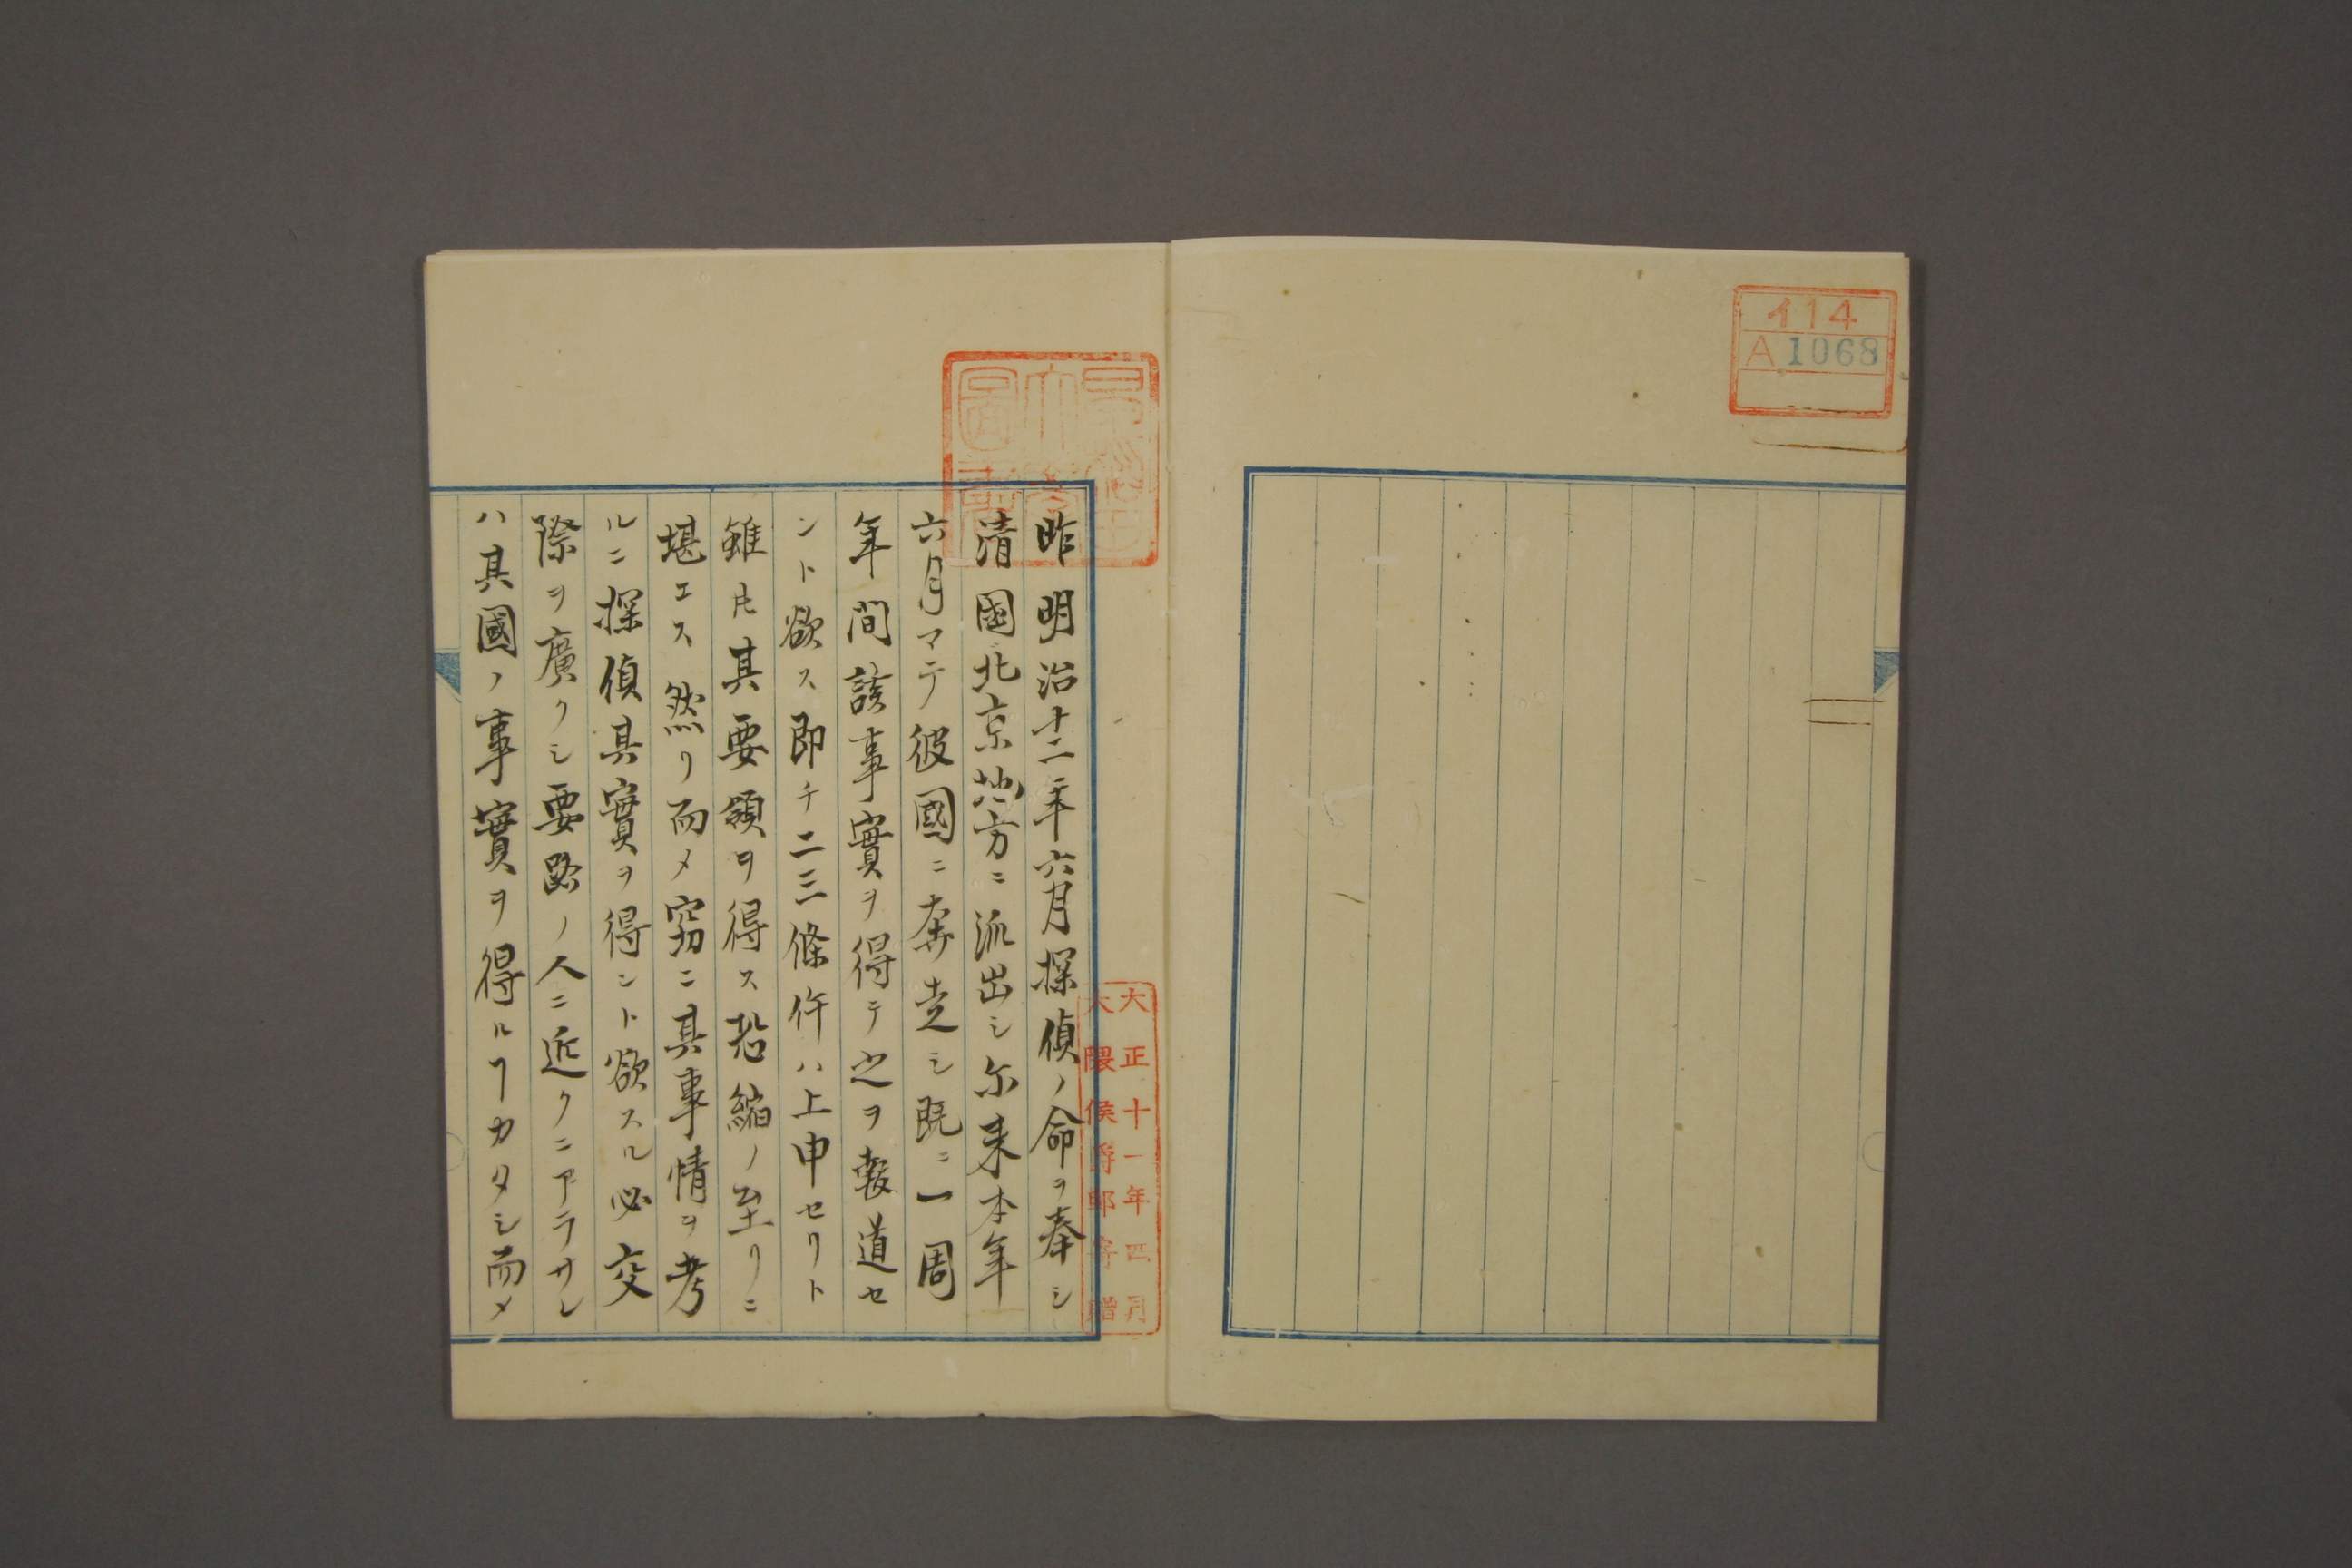 イ14
A 1068
早稲田
大學
圖書
昨明治十二年六月探偵ノ命ヲ奉シ
清國北京地方ニ派出シ尓来本年
六月マテ彼國ニ奔走シ既ニ一周
年間該事實ヲ得テ之ヲ報道セ
ント欲ス即チ二三條件ハ上申セリト
雖𪜈其要領ヲ得ス恐縮ノ至リニ
堪エス然リ而メ窃ニ其事情ヲ考
ルニ探偵其實ヲ得ント欲スル必交
際ヲ廣クシ要路ノ人ニ近クニアラサレ
ハ其國ノ事實ヲ得ルヿカタシ而メ
大正十一年四月
大隈侯爵邸寄贈